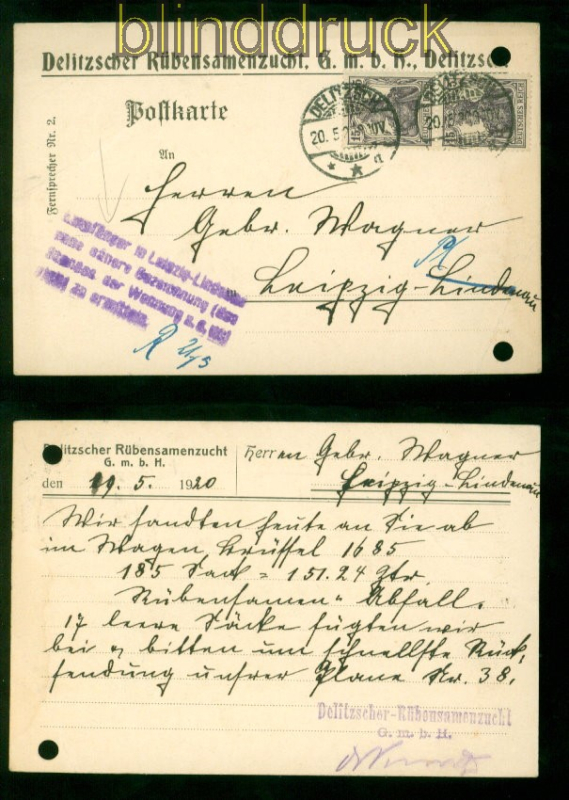 blinddruck
Delitzscher Rübensamenzucht. G. m. b. H., Delitzsch
Postkarte
Fernsprecher Nr. 2.
An
DELITZSCH
20. 5.
DEUTSCHES REICH
DEUTSCHES REICH
Herren
Gebr. Wagner
Leipzig-Lindenau
Empfänger in Leipzig-Lindenau
ohne nähere Bezeichnung (des
Standes, der Wohnung u. s. w.)
nicht zu ermitteln.
Delitzscher Rübensamenzucht
G. m. b. H.
Herren Gebr. Wagner
Leipzig-Lindenau
den 19. 5. 1920
Wir sandten heute an Sie ab
im Wagen Brüssel 1685
185 Sack = 151.24 Ztr.
Rübensamen-Abfall.
17 leere Säcke fügten wir
bei & bitten um schnellste Rück,
sendung unsrer Plane Nr. 38.
Delitzscher-Rübensamenzucht
G. m. b. H.